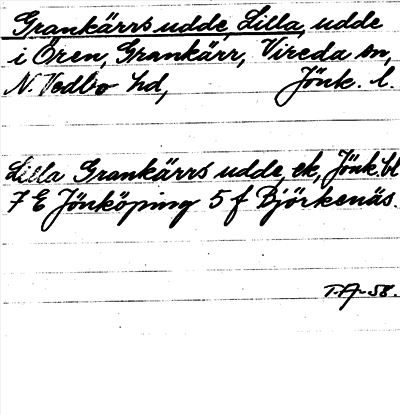 Grankärrs udde, Lilla, udde
i Ören, Grankärr, Vireda sn,
N. Vedbo hd, Jönk. l.
Lilla Grankärrs udde, ek, Jönk. bl
7 E Jönköping 5 f Björkenäs.
T.A-58.